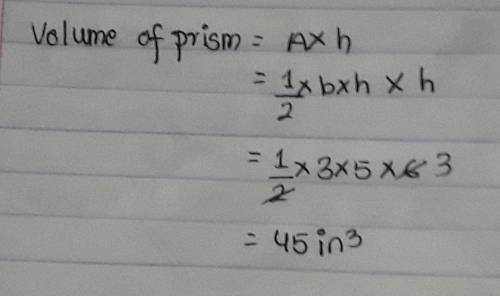 Volume of prism = A x h
= 1/2 x b x h x h
= 1/2 x 3 x 5 x 6 3
= 45 in³